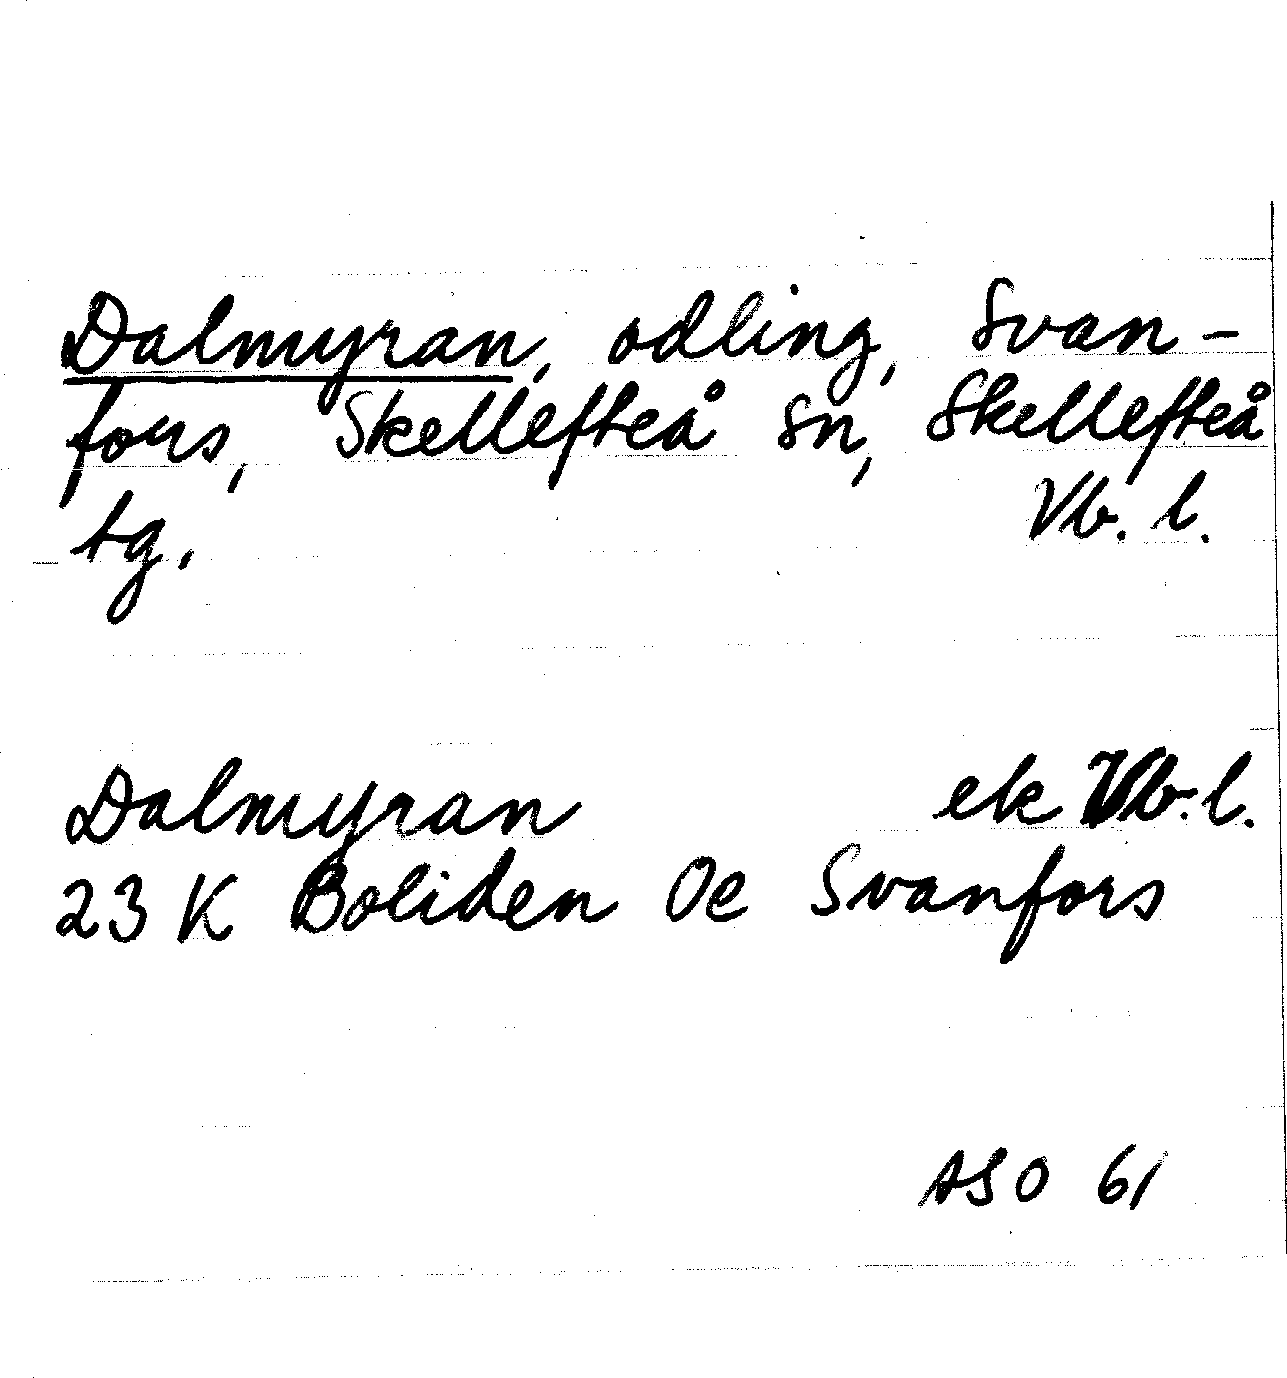 Dalmyran, odling, Svan-
fors, Skellefteå sn, Skellefteå
tg. Vb. l.
Dalmyran ek Vb. l.
23 K Boliden Oe Svanfors
ASO 61